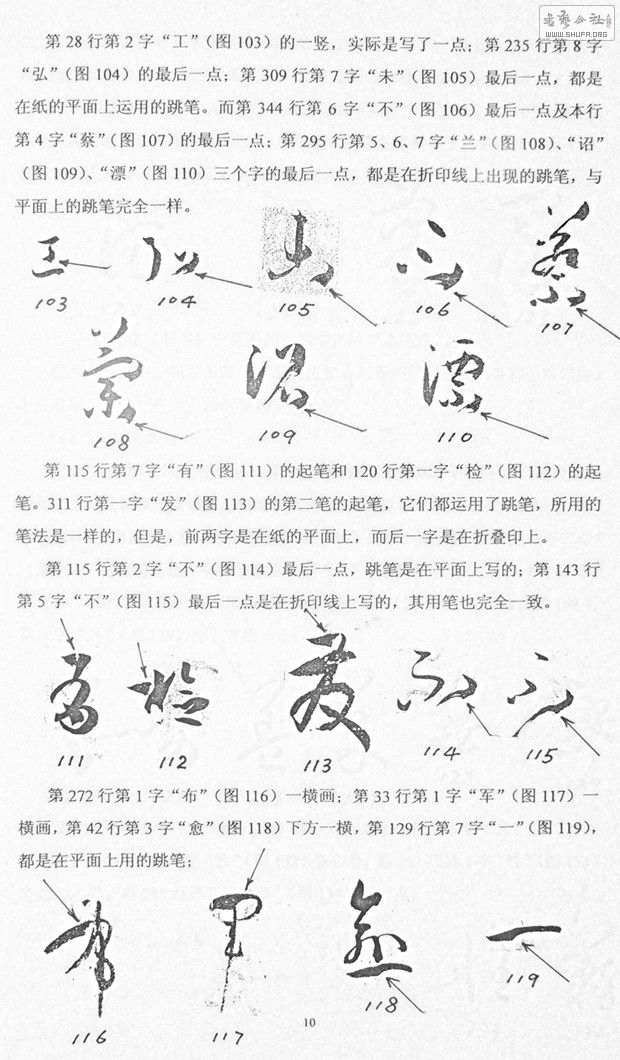 書藝公社
WWW.SHUFA.ORG
第 28 行第 2 字“工”（图 103）的一竖，实际是写了一点；第 235 行第 8 字
“弘”（图 104）的最后一点；第 309 行第 7 字“未”（图 105）最后一点，都是
在纸的平面上运用的跳笔。而第 344 行第 6 字“不”（图 106）最后一点及本行
第 4 字“蔡”（图 107）的最后一点；第 295 行第 5、6、7 字“兰”（图 108）、“诏”
（图 109）、“漂”（图 110）三个字的最后一点，都是在折印线上出现的跳笔，与
平面上的跳笔完全一样。
103 104 105 106 107
108 109 110
第 115 行第 7 字“有”（图 111）的起笔和 120 行第一字“检”（图 112）的起
笔。311 行第一字“发”（图 113）的第二笔的起笔，它们都运用了跳笔，所用的
笔法是一样的，但是，前两字是在纸的平面上，而后一字是在折叠印上。
第 115 行第 2 字“不”（图 114）最后一点，跳笔是在平面上写的；第 143 行
第 5 字“不”（图 115）最后一点是在折印线上写的，其用笔也完全一致。
111 112 113 114 115
第 272 行第 1 字“布”（图 116）一横画；第 33 行第 1 字“军”（图 117）一
横画，第 42 行第 3 字“愈”（图 118）下方一横，第 129 行第 7 字“一”（图 119），
都是在平面上用的跳笔；
116 117 118 119
10